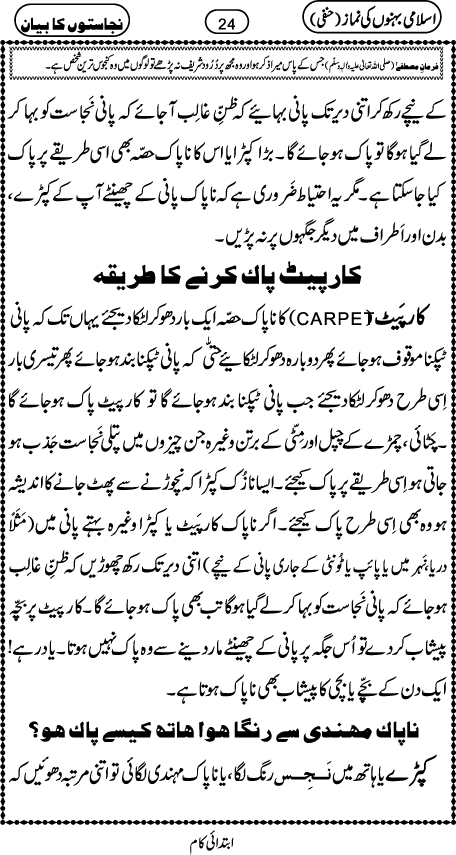 اسلامی بہنوں کی نماز (حنفی)
24
نجاستوں کا بیان
فرمانِ مصطفےٰ (صلی اللہ تعالیٰ علیہ واٰلہٖ وسلم) جس کے پاس میرا ذکر ہوا اور وہ مجھ پر دُرُود شریف نہ پڑھے تو لوگوں میں وہ کنجوس ترین شخص ہے۔
کے نیچے رکھ کر اتنی دیر تک پانی بہائیے کہ ظنِّ غالِب آ جائے کہ پانی نَجاست کو بہا کر
لے گیا ہو گا تو پاک ہو جائے گا۔ بڑا کپڑا یا اس کا ناپاک حصّہ بھی اسی طریقے پر پاک
کیا جا سکتا ہے۔ مگر یہ احتیاط ضَروری ہے کہ ناپاک پانی کے چھینٹے آپ کے کپڑے،
بدن اور اَطراف میں دیگر جگہوں پر نہ پڑیں۔
کارپیٹ پاک کرنے کا طریقہ
کارپَیٹ (CARPET) کا ناپاک حصّہ ایک بار دھو کر لٹکا دیجئے یہاں تک کہ پانی
ٹپکنا موقوف ہو جائے پھر دوبارہ دھو کر لٹکائیے حتّٰی کہ پانی ٹپکنا بند ہو جائے پھر تیسری بار
اِسی طرح دھو کر لٹکا دیجئے جب پانی ٹپکنا بند ہو جائے گا تو کارپیٹ پاک ہو جائے گا
۔ چٹائی، چمڑے کے چپل اور مِٹّی کے برتن وغیرہ جن چیزوں میں پتلی نَجاست جَذب ہو
جاتی ہو اِسی طریقے پر پاک کیجئے۔ ایسا نازُک کپڑا کہ نچوڑنے سے پھٹ جانے کا اندیشہ
ہو وہ بھی اِسی طرح پاک کیجئے۔ اگر ناپاک کارپَیٹ یا کپڑا وغیرہ بہتے پانی میں (مَثَلاً
دریا، نَہر میں یا پائپ یا ٹُونٹی کے جاری پانی کے نیچے) اتنی دیر تک رکھ چھوڑیں کہ ظنِّ غالِب
ہو جائے کہ پانی نَجاست کو بہا کر لے گیا ہو گا تب بھی پاک ہو جائے گا۔ کارپَیٹ پر بچّہ
پیشاب کر دے تو اُس جگہ پر پانی کے چھینٹے مار دینے سے وہ پاک نہیں ہوتا۔ یاد رہے!
ایک دن کے بچّے یا بچّی کا پیشاب بھی ناپاک ہوتا ہے۔
ناپاک مہندی سے رنگا ہوا ہاتھ کیسے پاک ہو؟
کپڑے یا ہاتھ میں نَجِس رنگ لگا، یا ناپاک مہندی لگائی تو اتنی مرتبہ دھوئیں کہ
ابتدائی کام